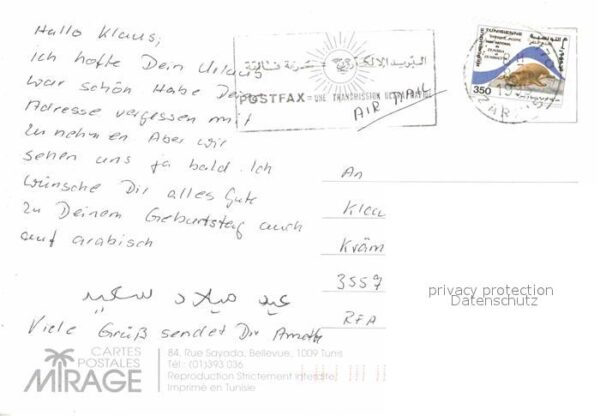 Hallo Klaus,
Ich hoffe Dein Urlaub
war schön Habe Deine
Adresse vergessen mit
zu nehmen Aber wir
sehen uns ja bald. Ich
wünsche Dir alles Gute
zu Deinem Geburtstag auch
auf arabisch
عيد ميلاد سعيد
Viele Grüß sendet Dir
البريد الإلكتروني
POSTFAX = UNE TRANSMISSION
AIR MAIL
REPUBLIQUE TUNISIENNE
350
An
Klau
Kräm
3557
RFA
privacy protection
Datenschutz
CARTES
POSTALES
MIRAGE
84, Rue Sayada, Bellevue, 1009 Tunis
Tél.: (01)393 036
Reproduction Strictement Interdite
Imprimé en Tunisie